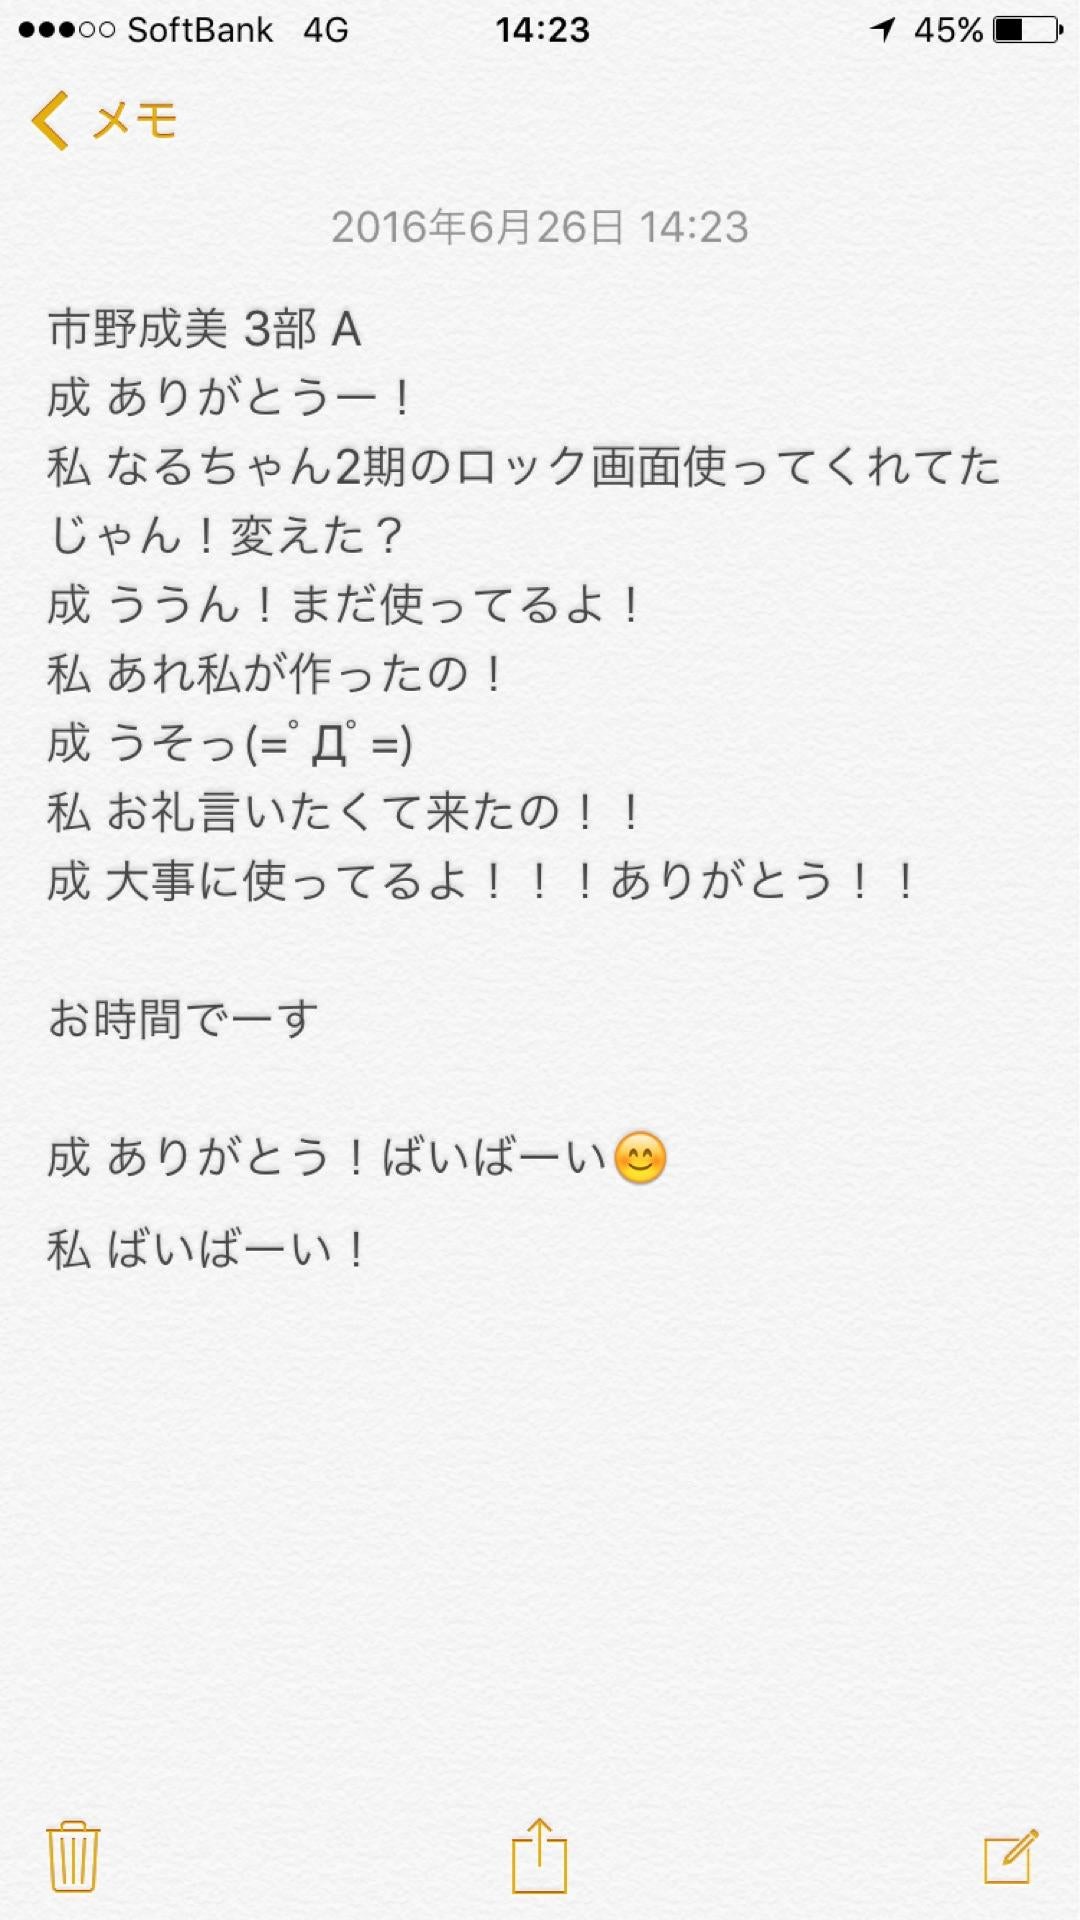 ●●●○○ SoftBank 4G 14:23 45%
メモ
2016年6月26日 14:23
市野成美 3部 A
成 ありがとうー！
私 なるちゃん2期のロック画面使ってくれてた
じゃん！変えた？
成 ううん！まだ使ってるよ！
私 あれ私が作ったの！
成 うそっ(=ﾟДﾟ=)
私 お礼言いたくて来たの！！
成 大事に使ってるよ！！！ありがとう！！
お時間でーす
成 ありがとう！ばいばーい😊
私 ばいばーい！